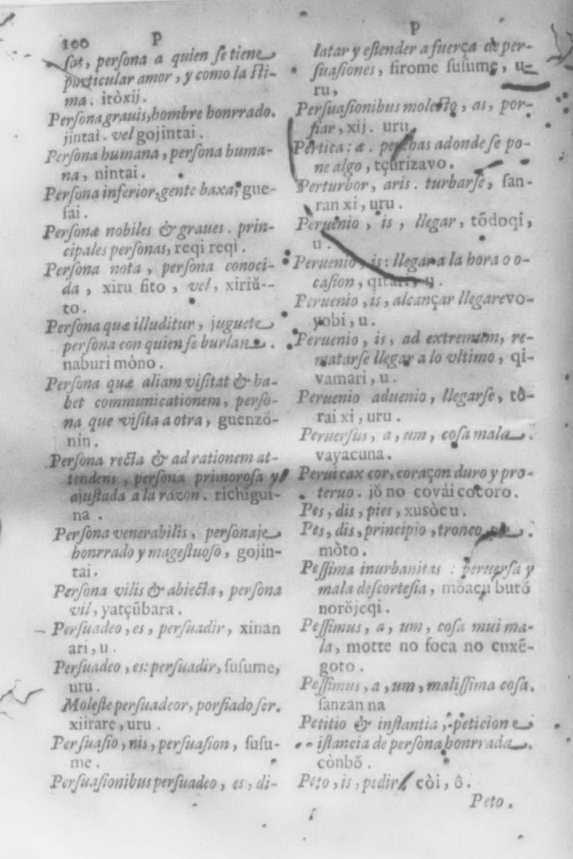 100 P
sos, persona a quien se tiene
particular amor, y como la sti-
ma. itòxij.
Persona grauis, hombre honrrado.
jintai. vel gojintai.
Persona humana, persona huma-
na, nintai.
Persona inferior, gente baxa, gue-
sai.
Personæ nobiles & graues. prin-
cipales personas, reqi reqi.
Persona nota, persona conoci-
da, xiru fito, vel, xiriŭ-
to.
Persona quæ illuditur, juguete
persona con quien se burlan.
naburi mòno.
Persona quæ aliam visitat & ha-
bet communicationem, perso-
na que visita a otra, guenzŏ-
nin.
Persona recta & ad rationem at-
tendens, persona primorosa y
ajustada a la razon. richigui-
na.
Persona venerabilis, personaje
honrrado y magestuoso, gojin-
tai.
Persona vilis & abiecta, persona
vil, yatçŭbara.
Persuadeo, es, persuadir, xinan
ari, u.
Persuadeo, es: persuadir, susume,
uru.
Moleste persuadeor, porfiado ser.
xiirare, uru.
Persuasio, nis, persuasion, susu-
me.
Persuasionibus persuadeo, es, di-
P
latar y estender a fuerça de per-
suasiones, firome susume, u-
ru,
Persuasionibus molesto, as, por-
fiar, xij. uru.
Pertica: æ. perchas adonde se po-
ne algo, tçurizavo.
Perturbor, aris. turbarse, fan-
ran xi, uru.
Peruenio, is, llegar, tŏdoqi,
u.
Peruenio, is: llegar a la hora o o-
casion, qitari, u.
Peruenio, is, alcançar llegar evo-
yobi, u.
Peruenio, is, ad extremum, re-
matarse llegar a lo vltimo, qi-
vamari, u.
Peruenio aduenio, llegarse, tŏ-
rai xi, uru.
Peruersus, a, um, cosa mala.
vayacuna.
Peruicax cor, coraçon duro y pro-
teruo. jŏ no covài cocoro.
Pes, dis, pies, xusòcu.
Pes, dis, principio, tronco,
mòto.
Pessima inurbanitas: peruersa y
mala descortesia, mŏacu burŏ
norŏjeqi.
Pessimus, a, um, cosa mui ma-
la, motte no foca no cuxĕ-
goto.
Pessimus, a, um, malissima cosa.
sanzan na
Petitio & instantia, peticion e
istancia de persona honrrada.
cònbŏ.
Peto, is, pedir, còi, ô.
Peto.